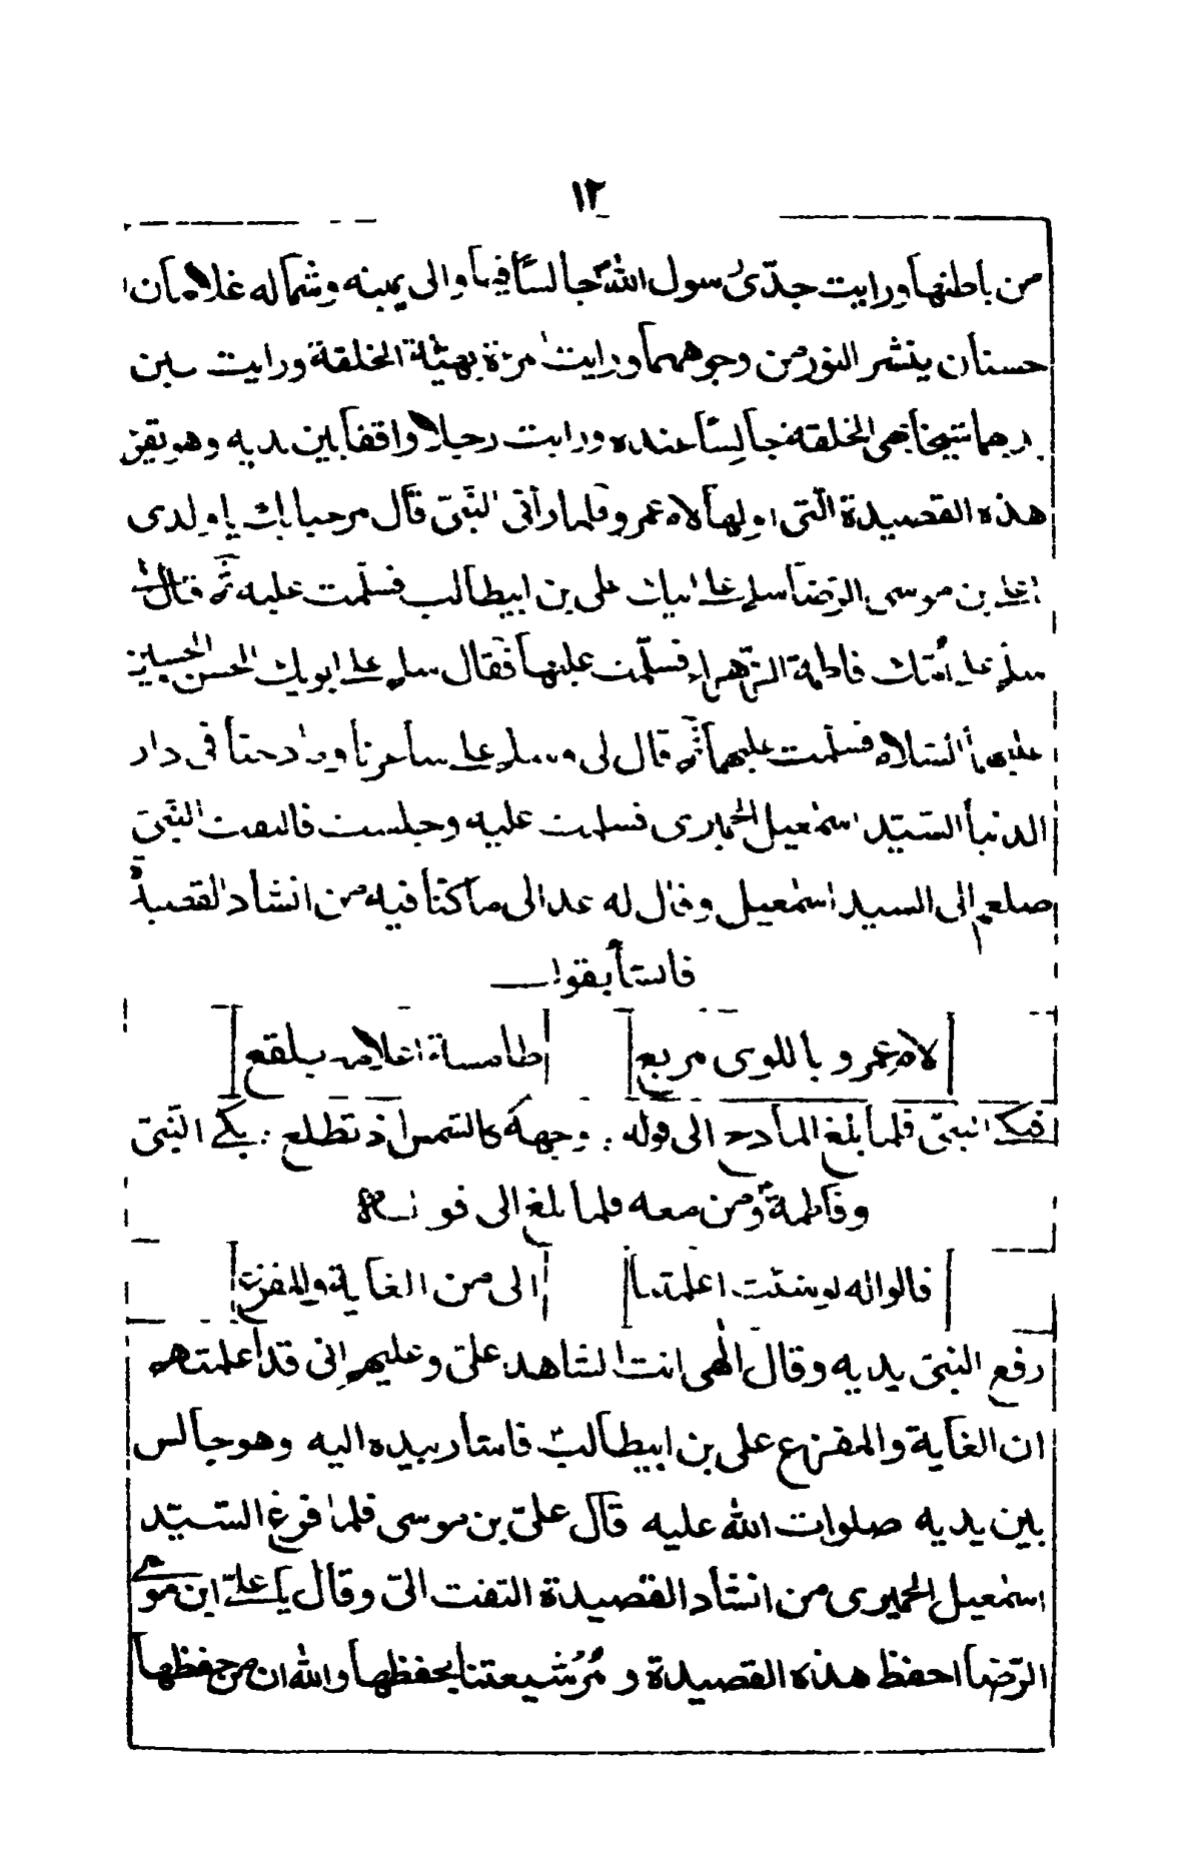 ١٢
من باطنها ورايت جدّى رسول الله جالسًا فيها والى يمينه وشماله غلامان
حسنان ينشر النور من وجوههما ورايت امرءة بهيئة الخلقة ورايت بين
يديهما شيخا بهى الخلقة جالسًا عنده ورايت رجلا واقفا بين يديه وهو يقرء
هذه القصيدة الّتى اولها لام عمرو فلما رآنى النّبىّ قال مرحبا بك يا ولدى
يا على بن موسى الرّضا سلم على ابيك على بن ابيطالب فسلّمت عليه ثم قال لى
سلّم على امّك فاطمة الزّهراء فسلّمت عليها فقال سلم على ابويك الحسن والحسين
عليهما السّلام فسلّمت عليهما ثم قال لى وسلم على شاعرنا ومادحنا فى دار
الدنيا السّيّد اسمعيل الحميرى فسلمت عليه وجلست فالتفت النّبىّ
صلعم الى السيد اسمعيل وقال له عد الى ما كنا فيه من انشاد القصيدة
فانشأ يقول
لام عمرو باللوى مربع طامسة اعلامه بلقع
فبكى النبىّ فلما بلغ المادح الى قوله : وجهه كالشمس اذ تطلع : بكى النّبىّ
وفاطمة ومن معه فلما بلغ الى قوله
قالوا له لو شئت اعلمتنا الى من الغاية والمفزع
رفع النبىّ يديه وقال الهى انت الشاهد علىّ وعليهم انى قد اعلمتهم
ان الغاية والمفزع على بن ابيطالب فاشار بيده اليه وهو جالس
بين يديه صلوات الله عليه قال علىّ بن موسى فلما فرغ السّيّد
اسمعيل الحميرى من انشاد القصيدة التفت الىّ وقال يا علىّ ابن موسى
الرّضا احفظ هذه القصيدة و مُر شيعتنا بحفظها والله ان من حفظها